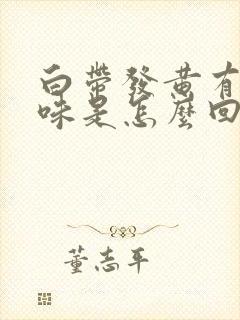 白帶發黃有
味是怎麼回
董志平